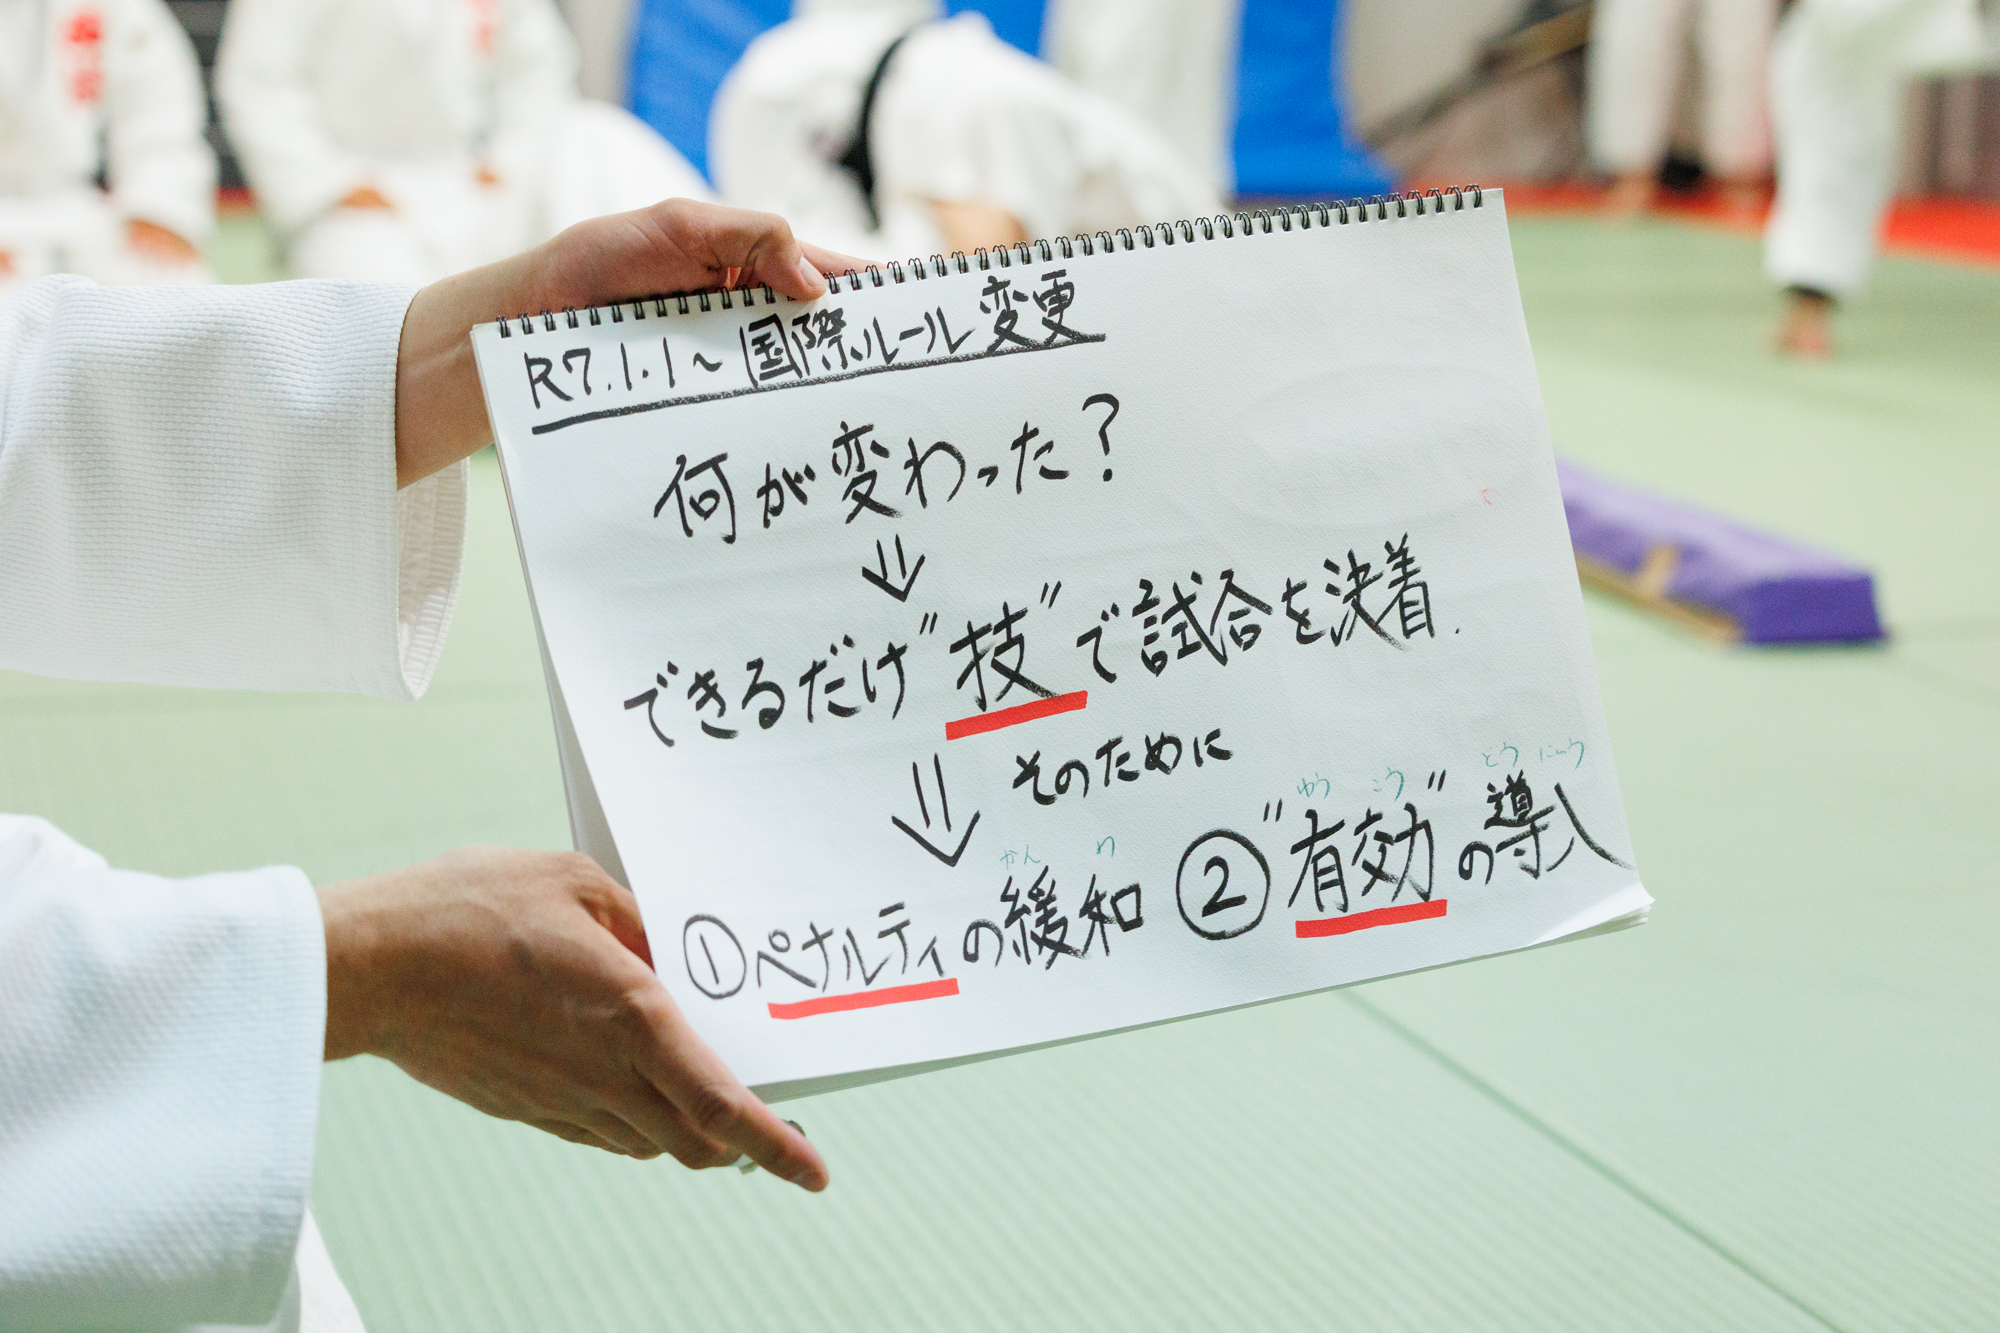 R7.1.1~国際ルール変更
何が変わった?
⇓
できるだけ"技"で試合を決着.
⇓ そのために
かん わ ゆう こう どう にゅう
①ペナルティの緩和 ②"有効"の導入